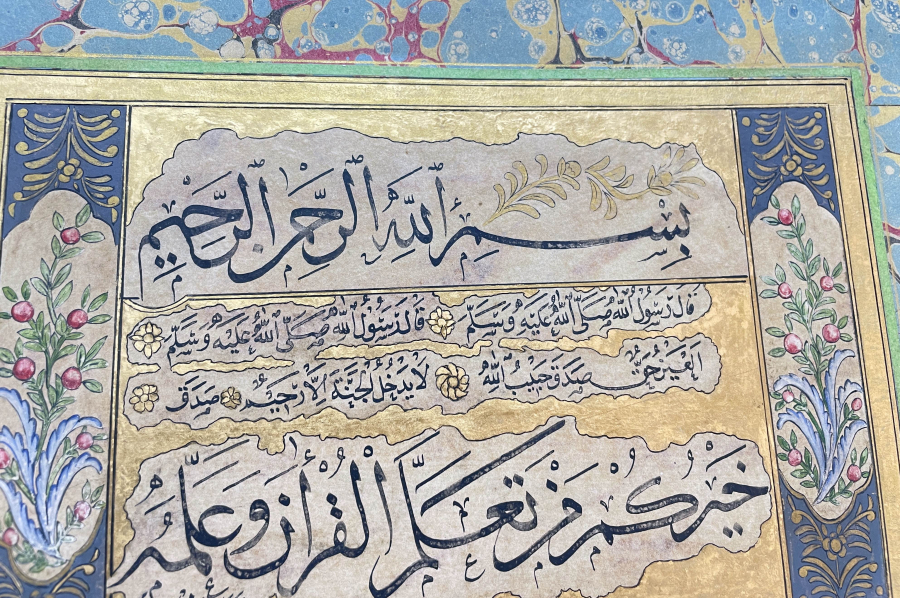 بِسْمِ اللّٰهِ الرَّحْمٰنِ الرَّحِيْمِ
قَالَ رَسُولُ اللّٰهِ صَلَّى اللّٰهُ عَلَيْهِ وَسَلَّمَ قَالَ رَسُولُ اللّٰهِ صَلَّى اللّٰهُ عَلَيْهِ وَسَلَّمَ
اَلْعَيْنُ حَقٌّ صَدَقَ حَبِيبُ اللّٰهِ لَا يَدْخُلُ الْجَنَّةَ اِلَّا رَحِيْمٌ صَدَقَ
خَيْرُكُمْ مَنْ تَعَلَّمَ الْقُرْاٰنَ وَعَلَّمَهُ